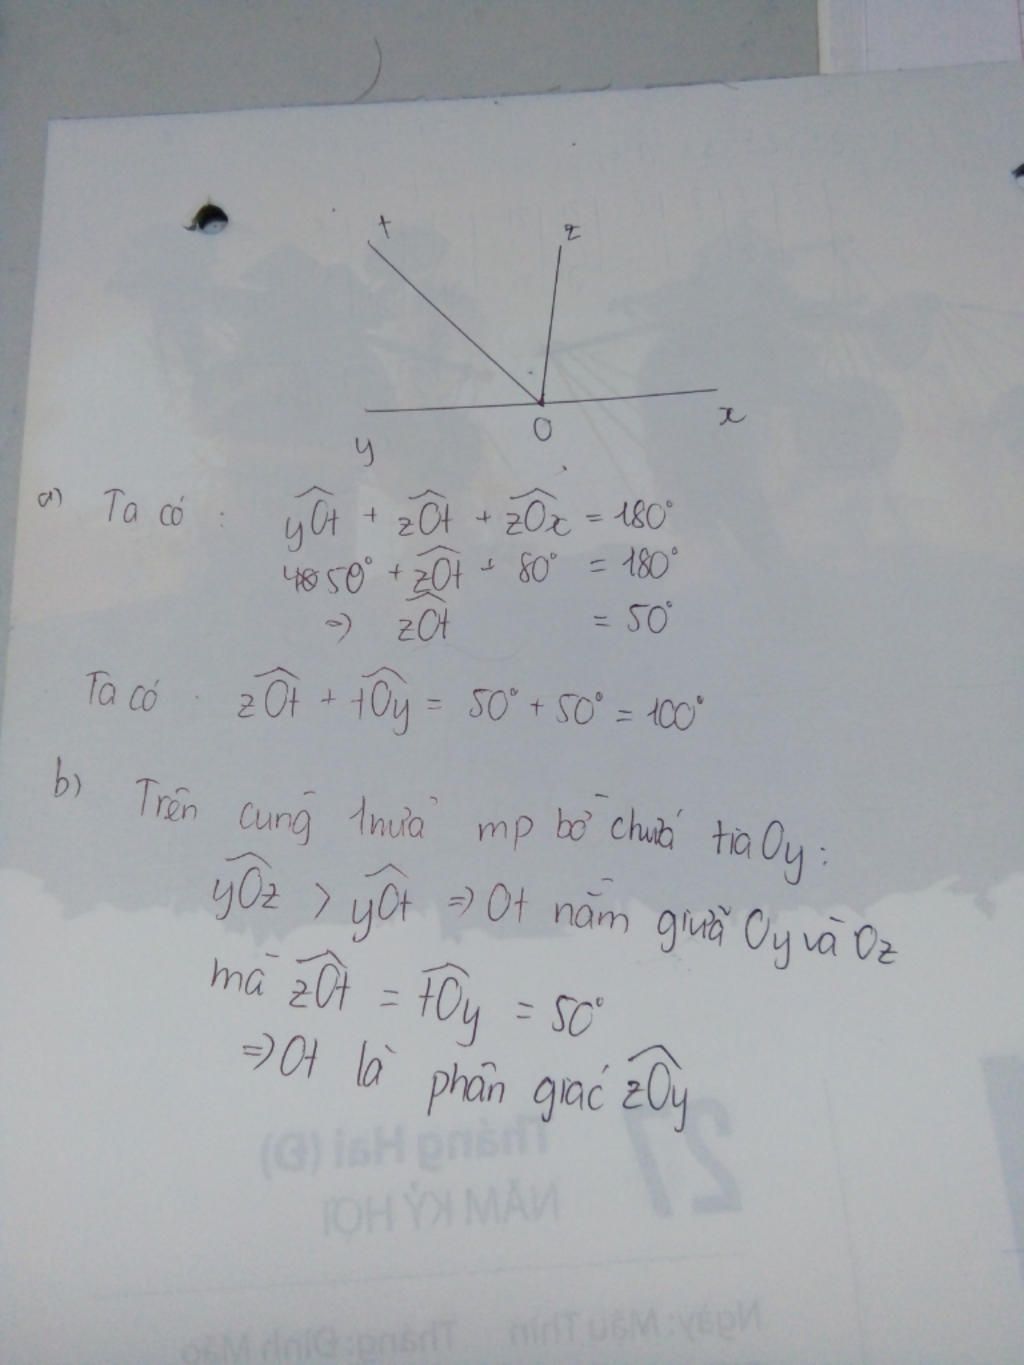 t
z
y
O
x
a) Ta có : yOt + zOt + zOx = 180°
50° + zOt + 80° = 180°
=> zOt = 50°
Ta có zOt + tOy = 50° + 50° = 100°
b) Trên cùng 1 nửa mp bờ chứa tia Oy :
yOz > yOt => Ot nằm giữa Oy và Oz
mà zOt = tOy = 50°
=> Ot là phân giác zOy
27
Tháng Hai (Đ)
NĂM KỶ HỢI
Ngày: Mậu Thìn Tháng: Đinh Mão